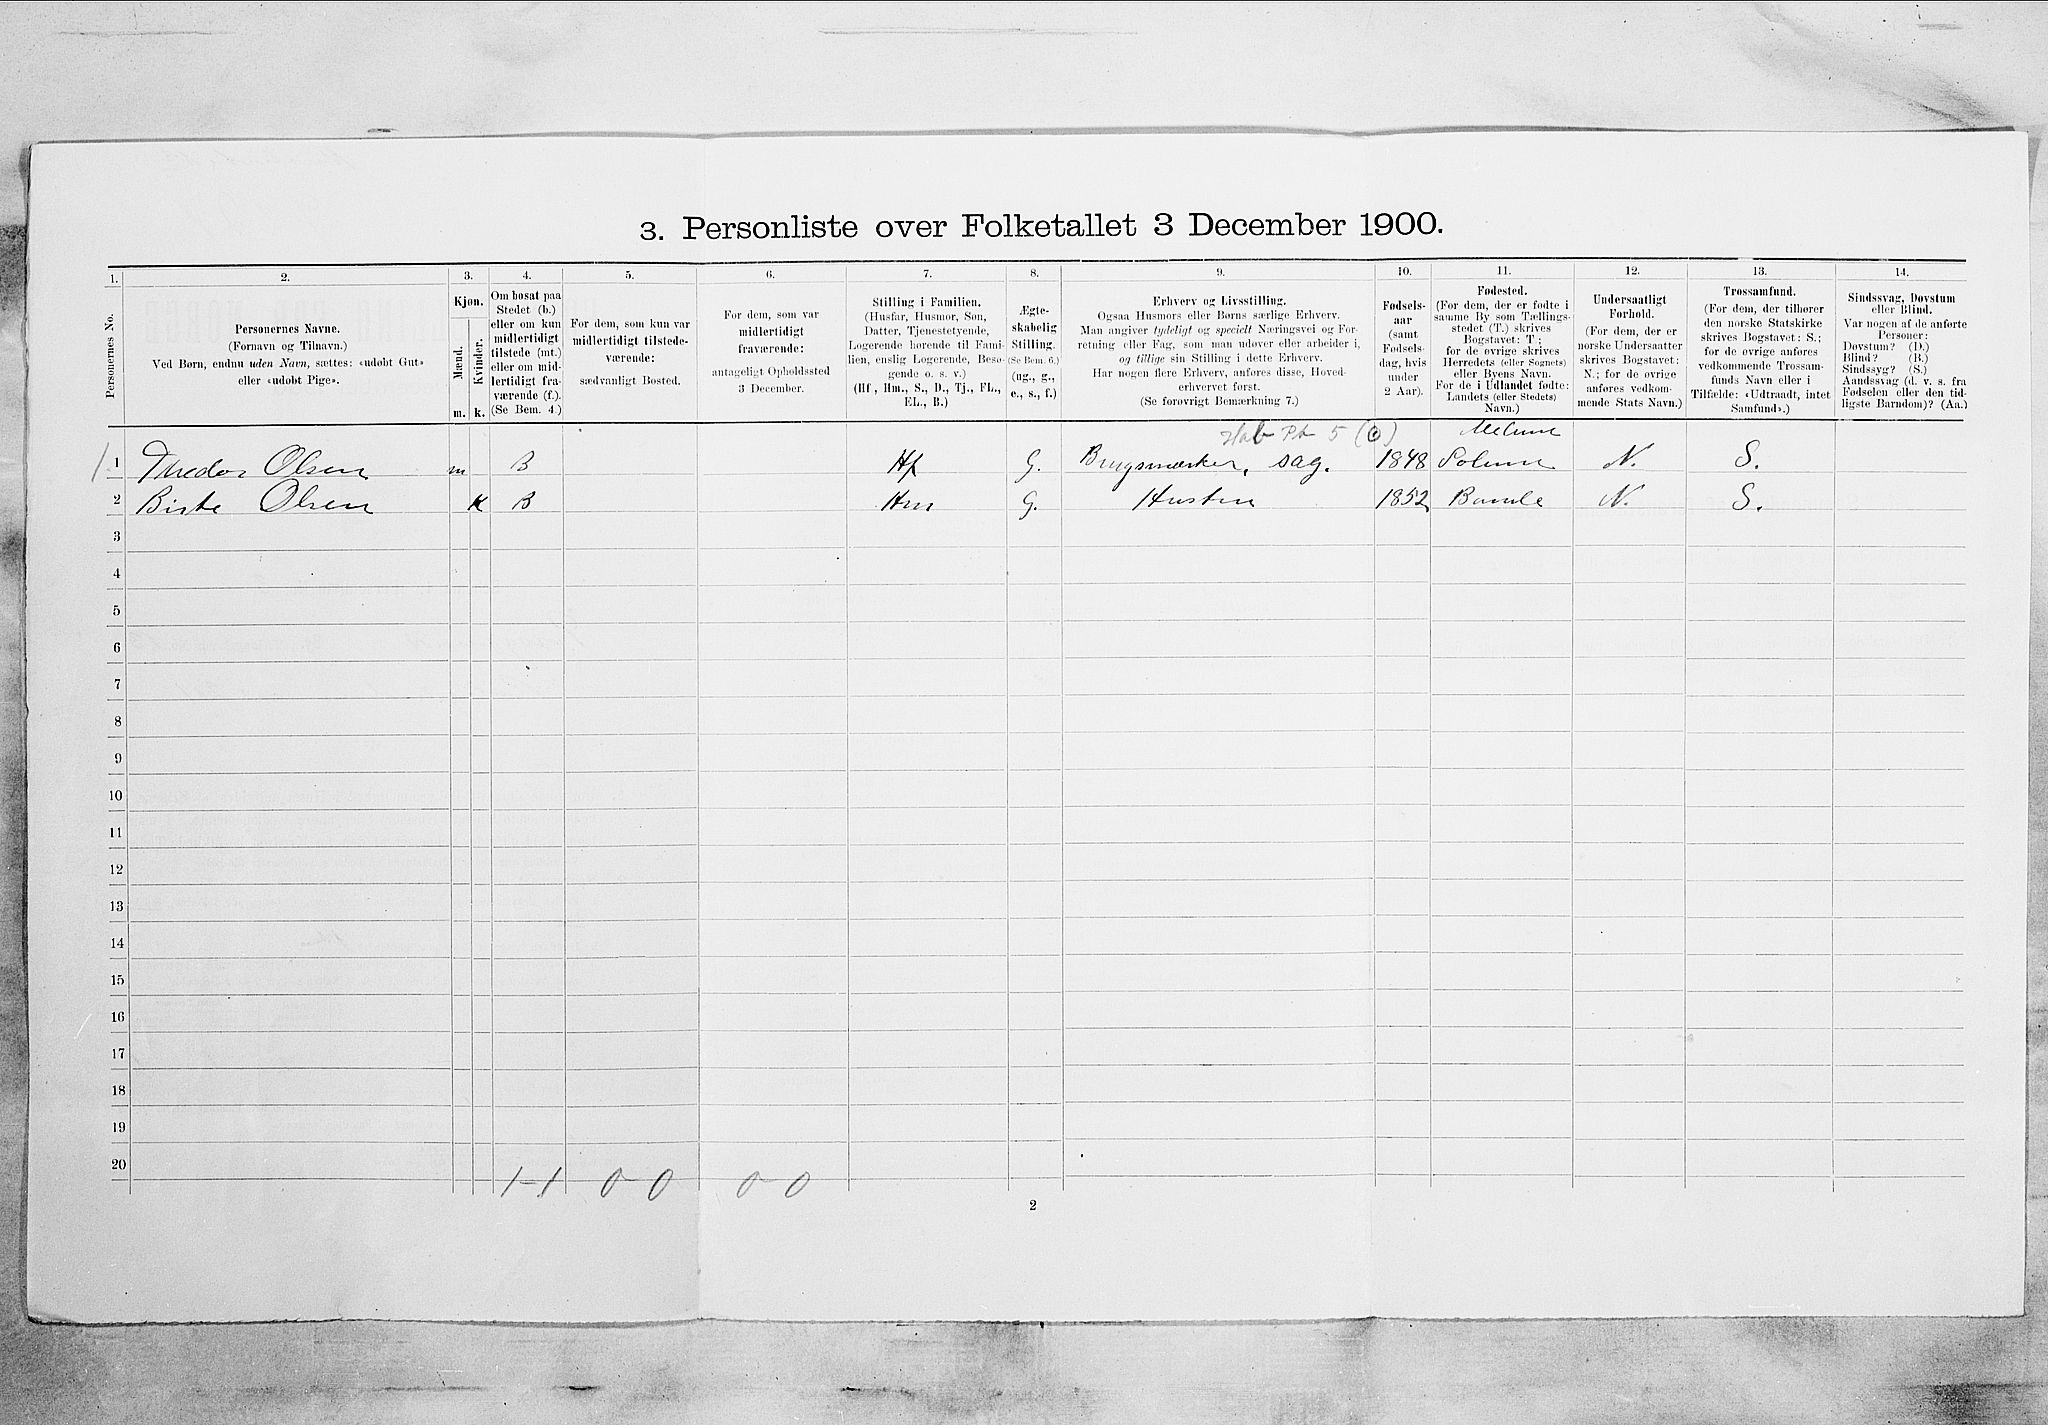 3. Personliste over Folketallet 3 December 1900.
1. 2. 3. 4. 5. 6. 7. 8. 9. 10. 11. 12. 13. 14.
Personernes No.
Personernes Navne.
(Fornavn og Tilnavn.)
Ved Børn, endnu uden Navn, sættes: «udøbt Gut»
eller «udøbt Pige».
Kjøn.
Mænd.
Kvinder.
m. k.
Om bosat paa
Stedet (b.)
eller om kun
midlertidigt
tilstede (mt.)
eller om mid-
lertidigt fra-
værende (f.).
(Se Bem. 4.)
For dem, som kun var
midlertidigt tilstede-
værende:
sædvanligt Bosted.
For dem, som var
midlertidigt
fraværende:
antageligt Opholdssted
3 December.
Stilling i Familien.
(Husfar, Husmor, Søn,
Datter, Tjenestetyende,
Logerende hørende til Fami-
lien, enslig Logerende, Besø-
gende o. s. v.)
(Hf., Hm., S., D., Tj., FL.,
EL., B.)
Ægte-
skabelig
Stilling.
(Se Bem. 6.)
(ug., g.,
e., s., f.)
Erhverv og Livsstilling.
Ogsaa Husmors eller Børns særlige Erhverv.
Man angiver tydeligt og specielt Næringsvei og For-
retning eller Fag, som man udøver eller arbeider i,
og tillige sin Stilling i dette Erhverv.
Har nogen flere Erhverv, anføres disse, Hoved-
erhvervet først.
(Se forøvrigt Bemærkning 7.)
Fødsels-
aar
(samt
Fødsels-
dag, hvis
under
2 Aar).
Fødested.
(For dem, der er fødte i
samme By som Tællings-
stedet (T.) skrives
Bogstavet: T;
for de øvrige skrives
Herredets (eller Sognets)
eller Byens Navn.
For de i Udlandet fødte:
Landets (eller Stedets)
Navn.)
Undersaatligt
Forhold.
(For dem, der er
norske Undersaatter
skrives Bogstavet:
N.; for de øvrige
anføres vedkom-
mende Stats Navn.)
Trossamfund.
(For dem, der tilhører
den norske Statskirke
skrives Bogstavet: S.;
for de øvrige anføres
vedkommende Trossam-
funds Navn eller i
Tilfælde: «Udtraadt, intet
Samfund».)
Sindssvag, Døvstum
eller Blind.
Var nogen af de anførte
Personer:
Døvstum? (D.)
Blind? (B.)
Sindssyg? (S.)
Aandssvag (d. v. s. fra
Fødselen eller den tid-
ligste Barndom)? (Aa.)
5 Melum
1 Thedor Olsen m B Hf G. sag. 1848 Solum N. S.
2 Birte Olsen K B Hm G. Hustru 1852 Bamle N. S.
3
4
5
6
7
8
9
10
11
12
13
14
15
16
17
18
19
20
1-1 0-0 0-0
2